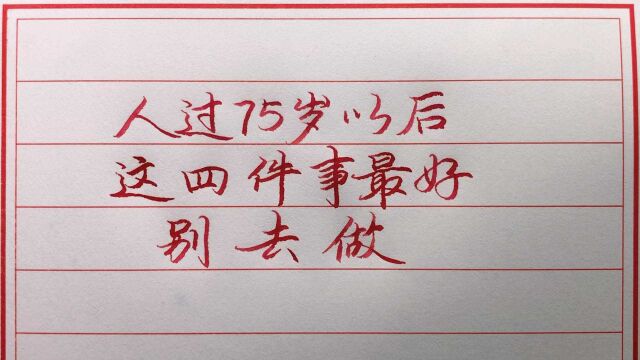 人过75岁以后
这四件事最好
别去做